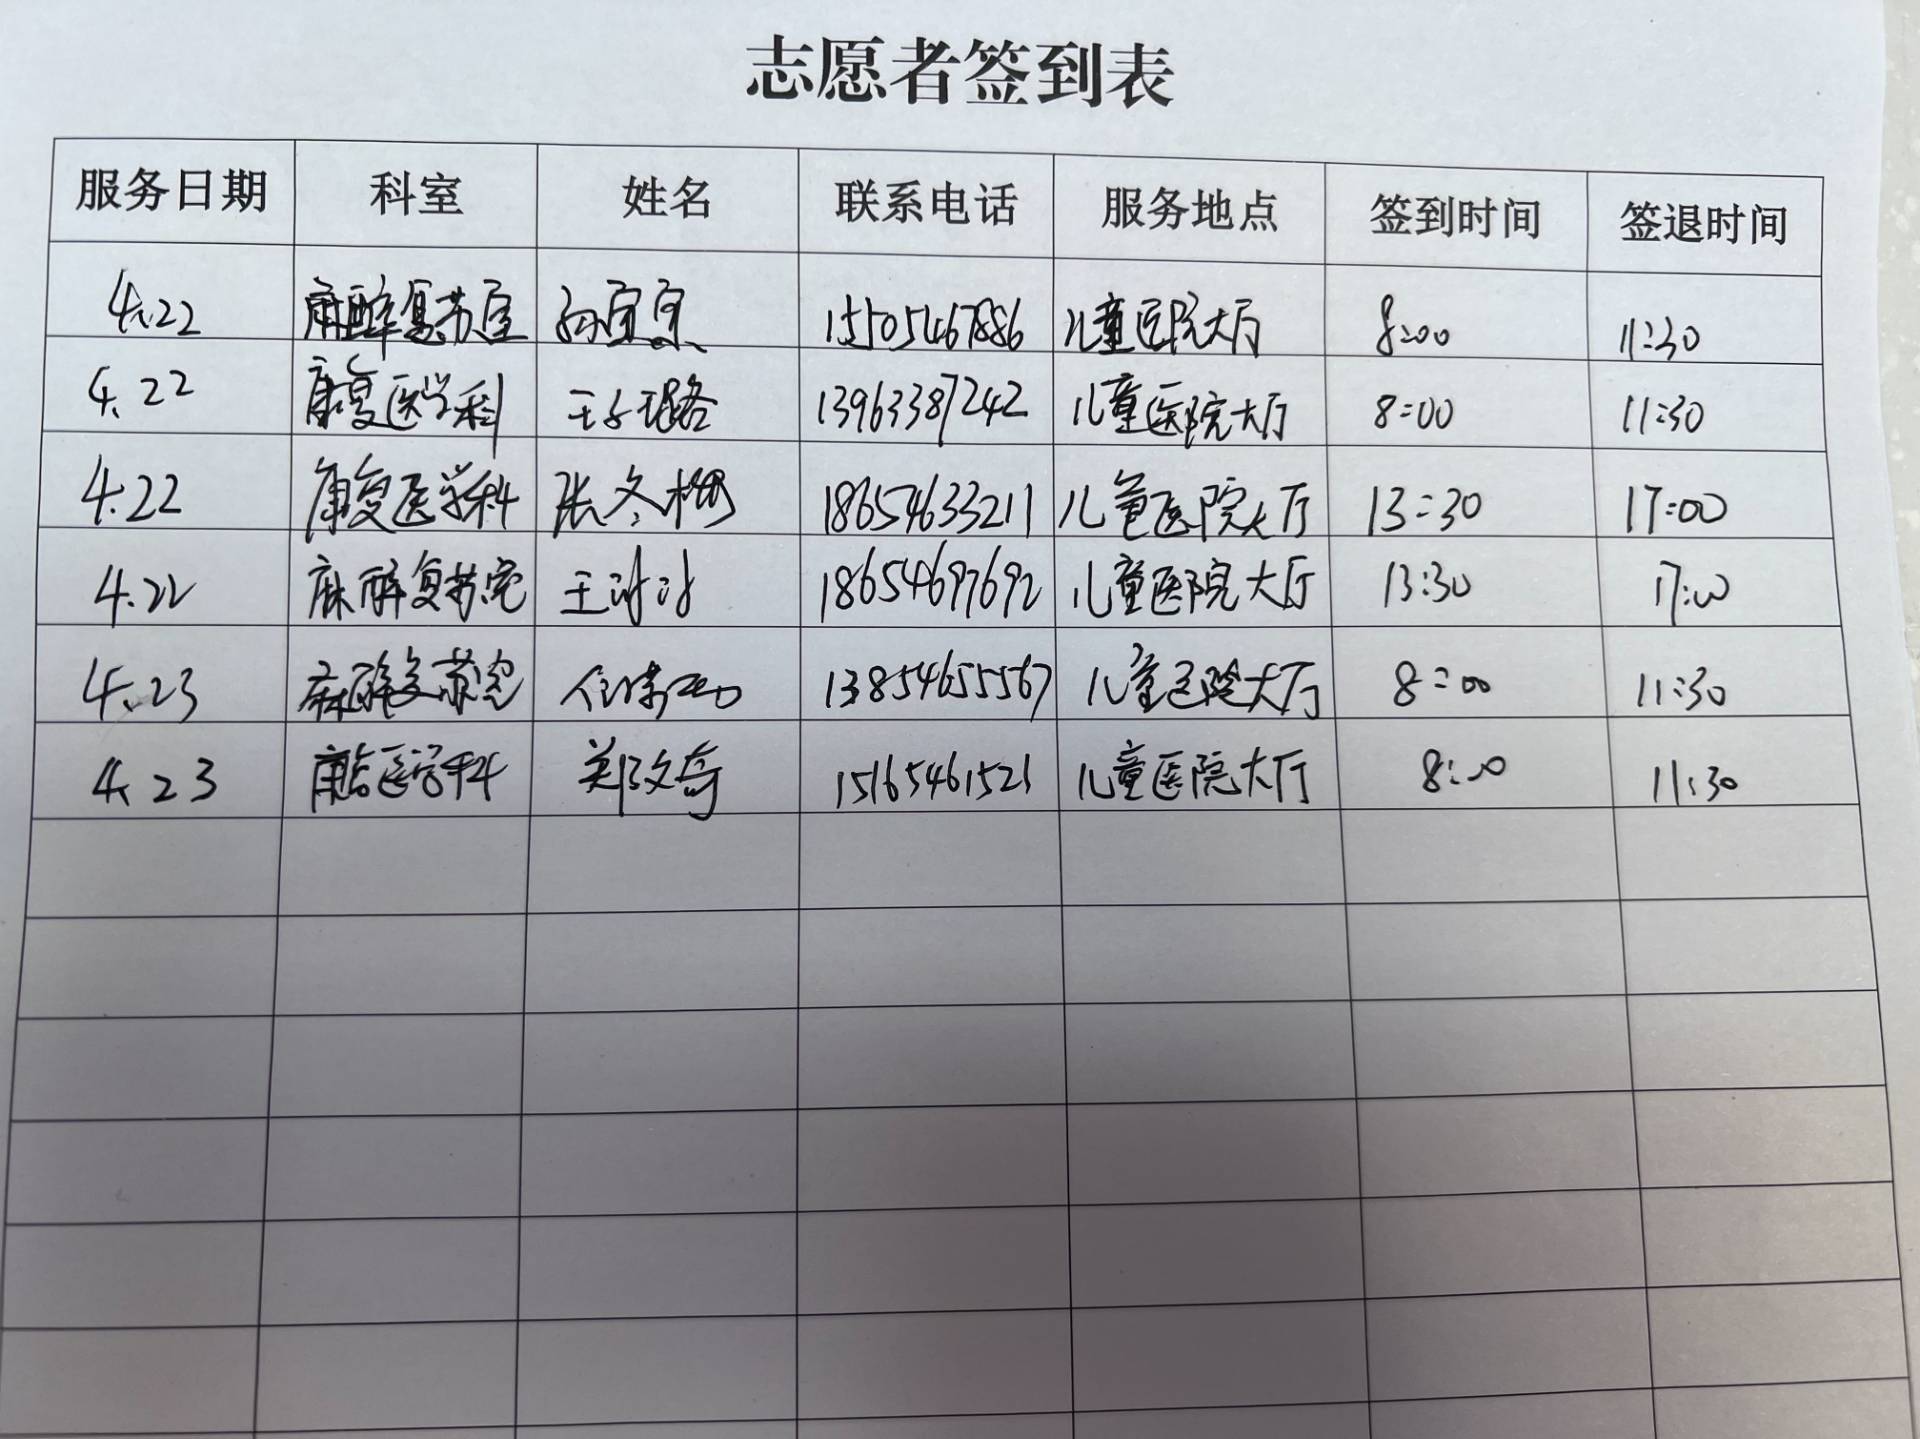 志愿者签到表
服务日期 科室 姓名 联系电话 服务地点 签到时间 签退时间
4.22 麻醉复苏室 孙宜宜 15505467886 儿童医院大厅 8:00 11:30
4.22 康复医学科 王子璐 13963387242 儿童医院大厅 8:00 11:30
4.22 康复医学科 张冬梅 18654633211 儿童医院大厅 13:30 17:00
4.22 麻醉复苏室 王 18654697692 儿童医院大厅 13:30 17:00
4.23 麻醉复苏室 任 13854655567 儿童医院大厅 8:00 11:30
4.23 康复医学科 郑文奇 15165461521 儿童医院大厅 8:00 11:30